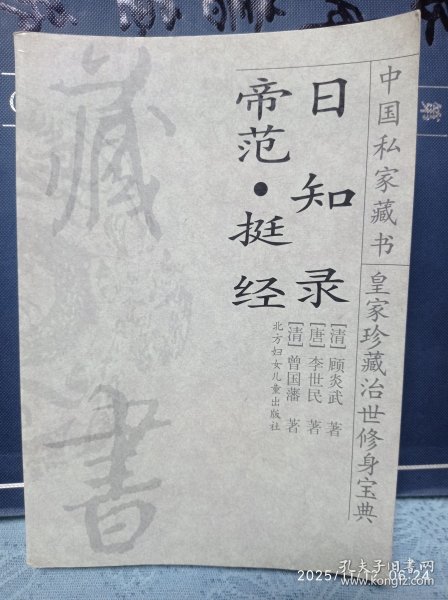 中国私家藏书
皇家珍藏治世修身宝典
日知录
帝范·挺经
[清]顾炎武 著
[唐]李世民 著
[清]曾国藩 著
北方妇女儿童出版社
藏書
2025/11/12 06:24
孔夫子旧书网